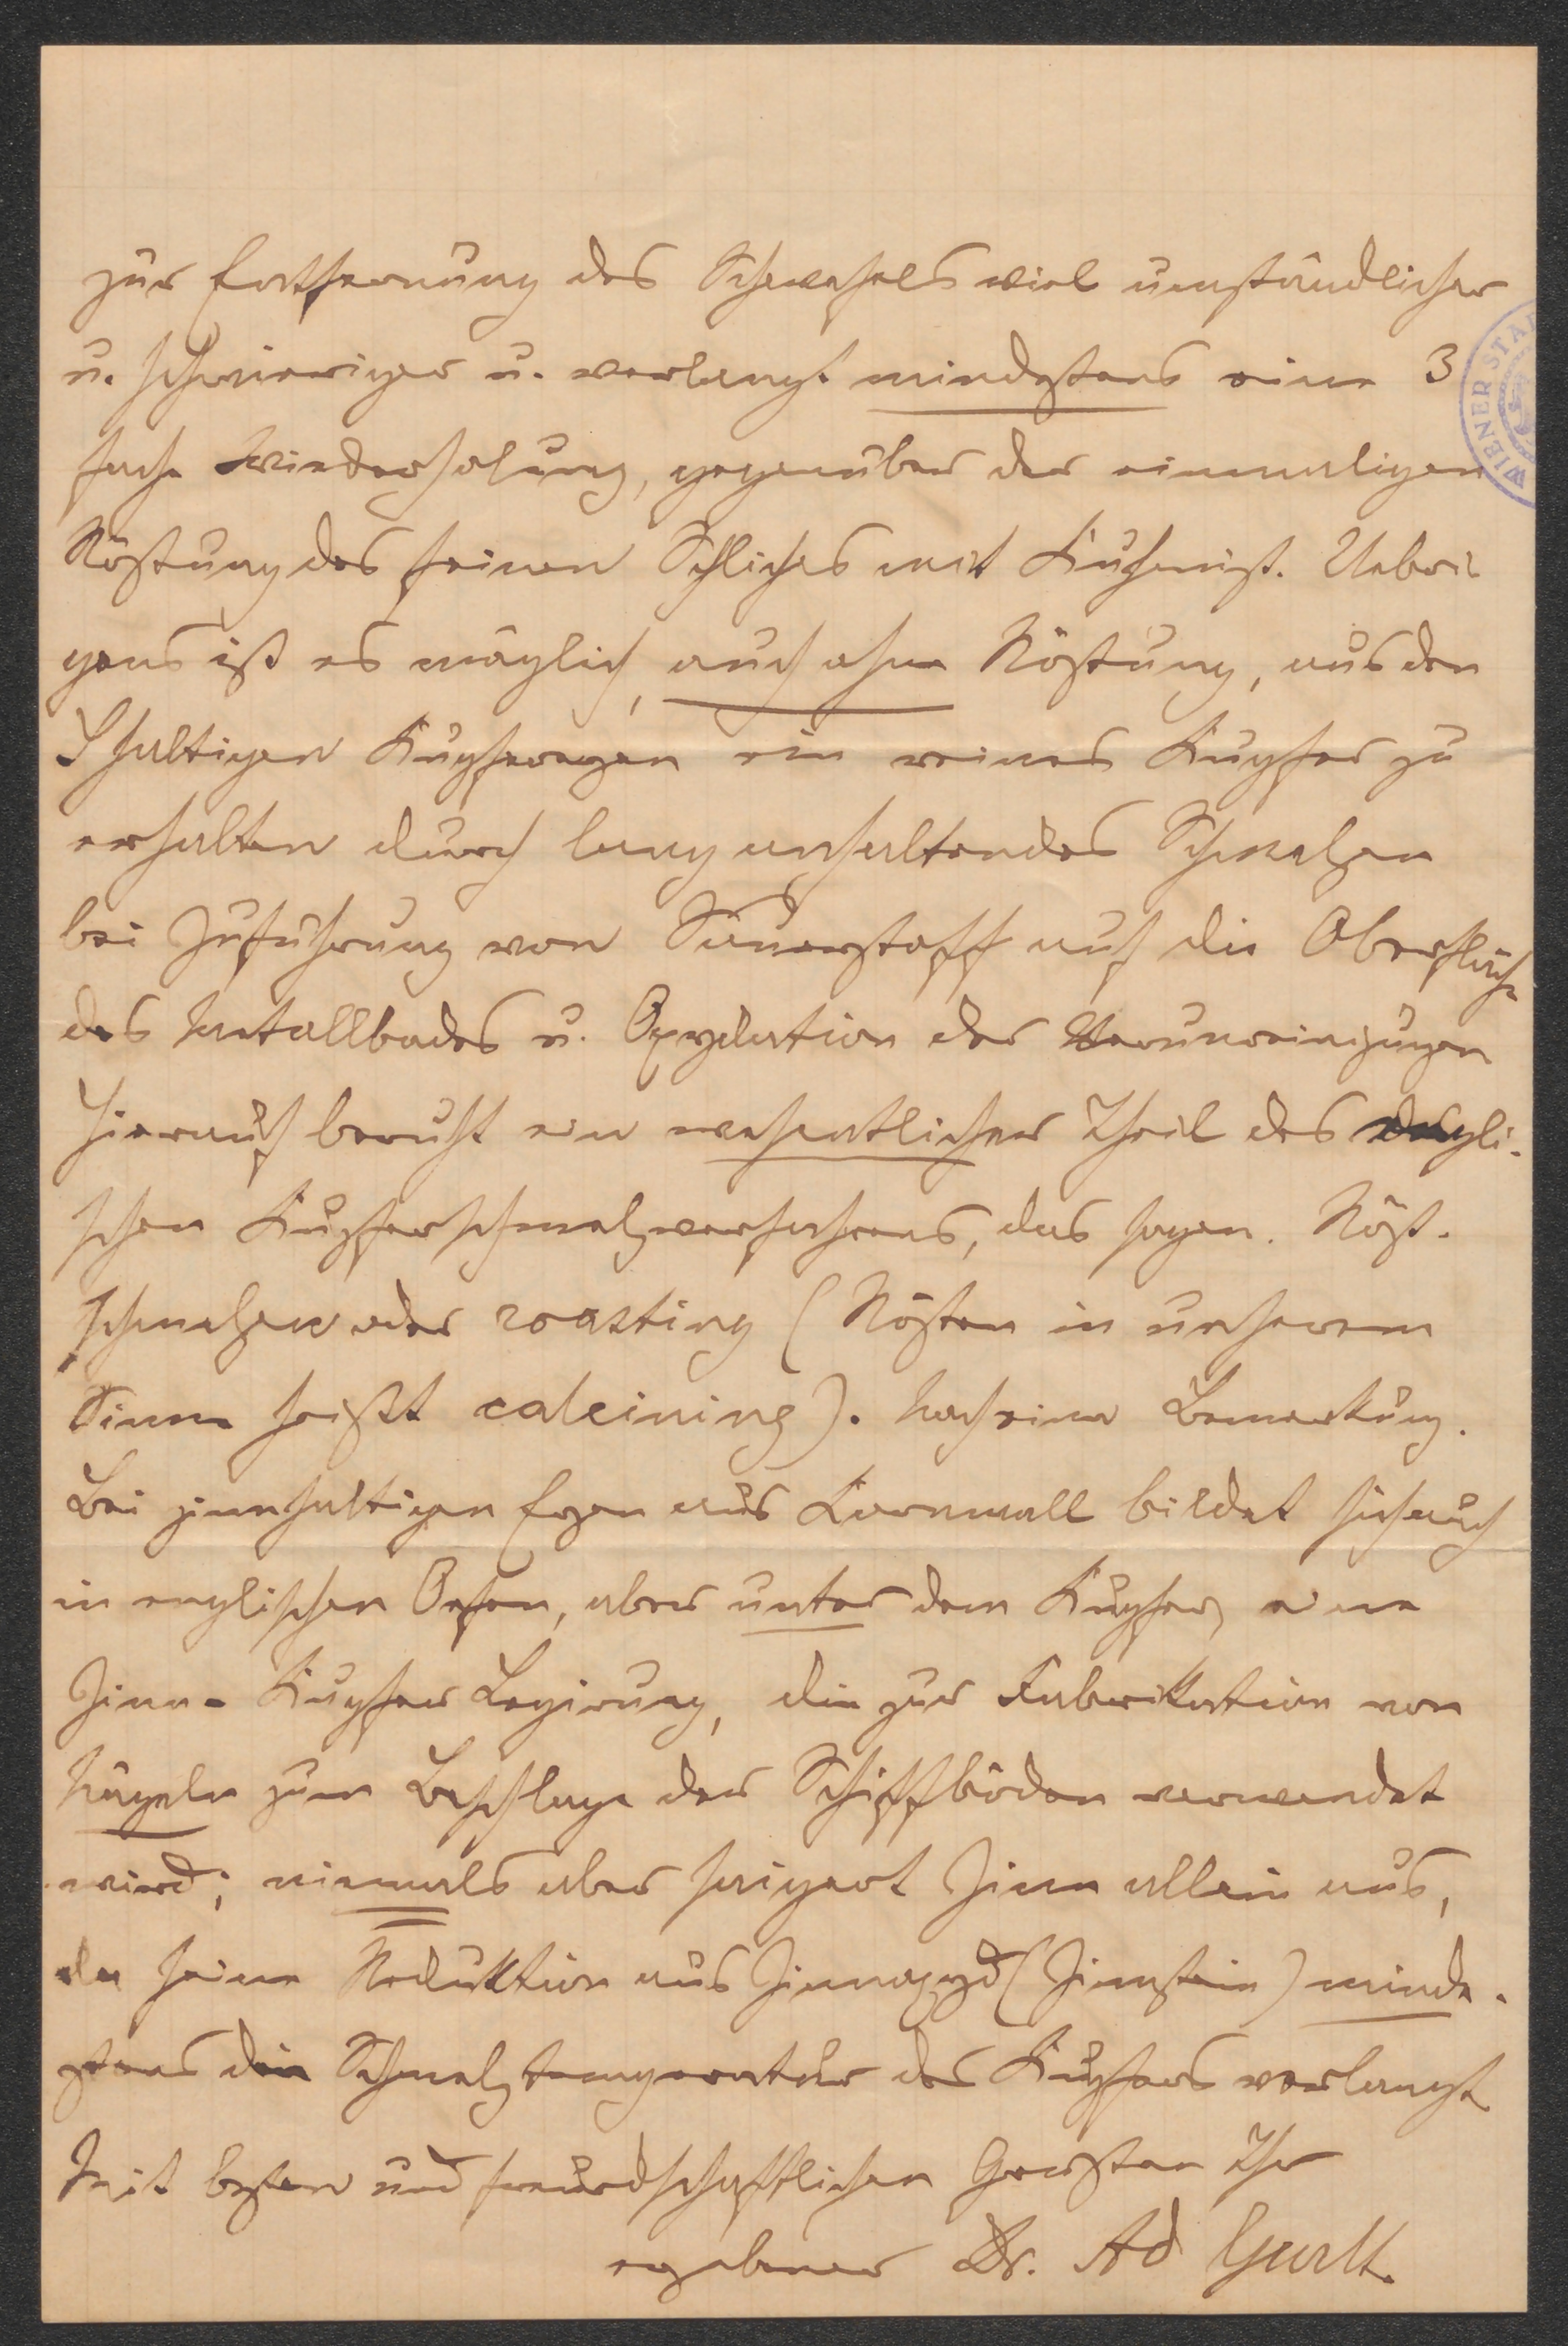 zur Entfernung des Schwefels viel umständlicher
u. schwieriger u. verlangt mindestens eine 3
fache Wiederholung, gegenüber der einmaligen
Röstung des feinen Schliches mit Kuhmist. Uebri
gens ist es möglich, auch ohne Röstung, aus den
S haltigen Kupfererzen ein reines Kupfer zu
erhalten durch lang anhaltendes Schmelzen
bei Zuführung von Sauerstoff auf die Oberfläche
des Metallbades u. Oxydation der Verunreinigungen
Hierauf beruht ein wesentlicher Theil des engli-
schen Kupferschmelzverfahrens, das sogen. Röst-
schmelzen oder roasting (Rösten in unserem
Sinne heißt calcining). Noch eine Bemerkung.
Bei zinnhaltigen Erzen aus Cornwall bildet sich auch
in englischen Oefen, aber unter dem Kupfer, eine
Zinn-Kupfer Legirung, die zur Fabrikation von
Nägeln zum Beschlage der Schiffböden verwendet
wird; niemals aber saigert Zinn allein aus,
da seine Reduktion aus Zinnoxyd (Zinnstein) minde-
stens die Schmelztemperatur des Kupfers verlangt
Mit besten und freundschaftlichen Gruessen Ihr
ergebener Dr. Ad Gurlt.
WIENER STA